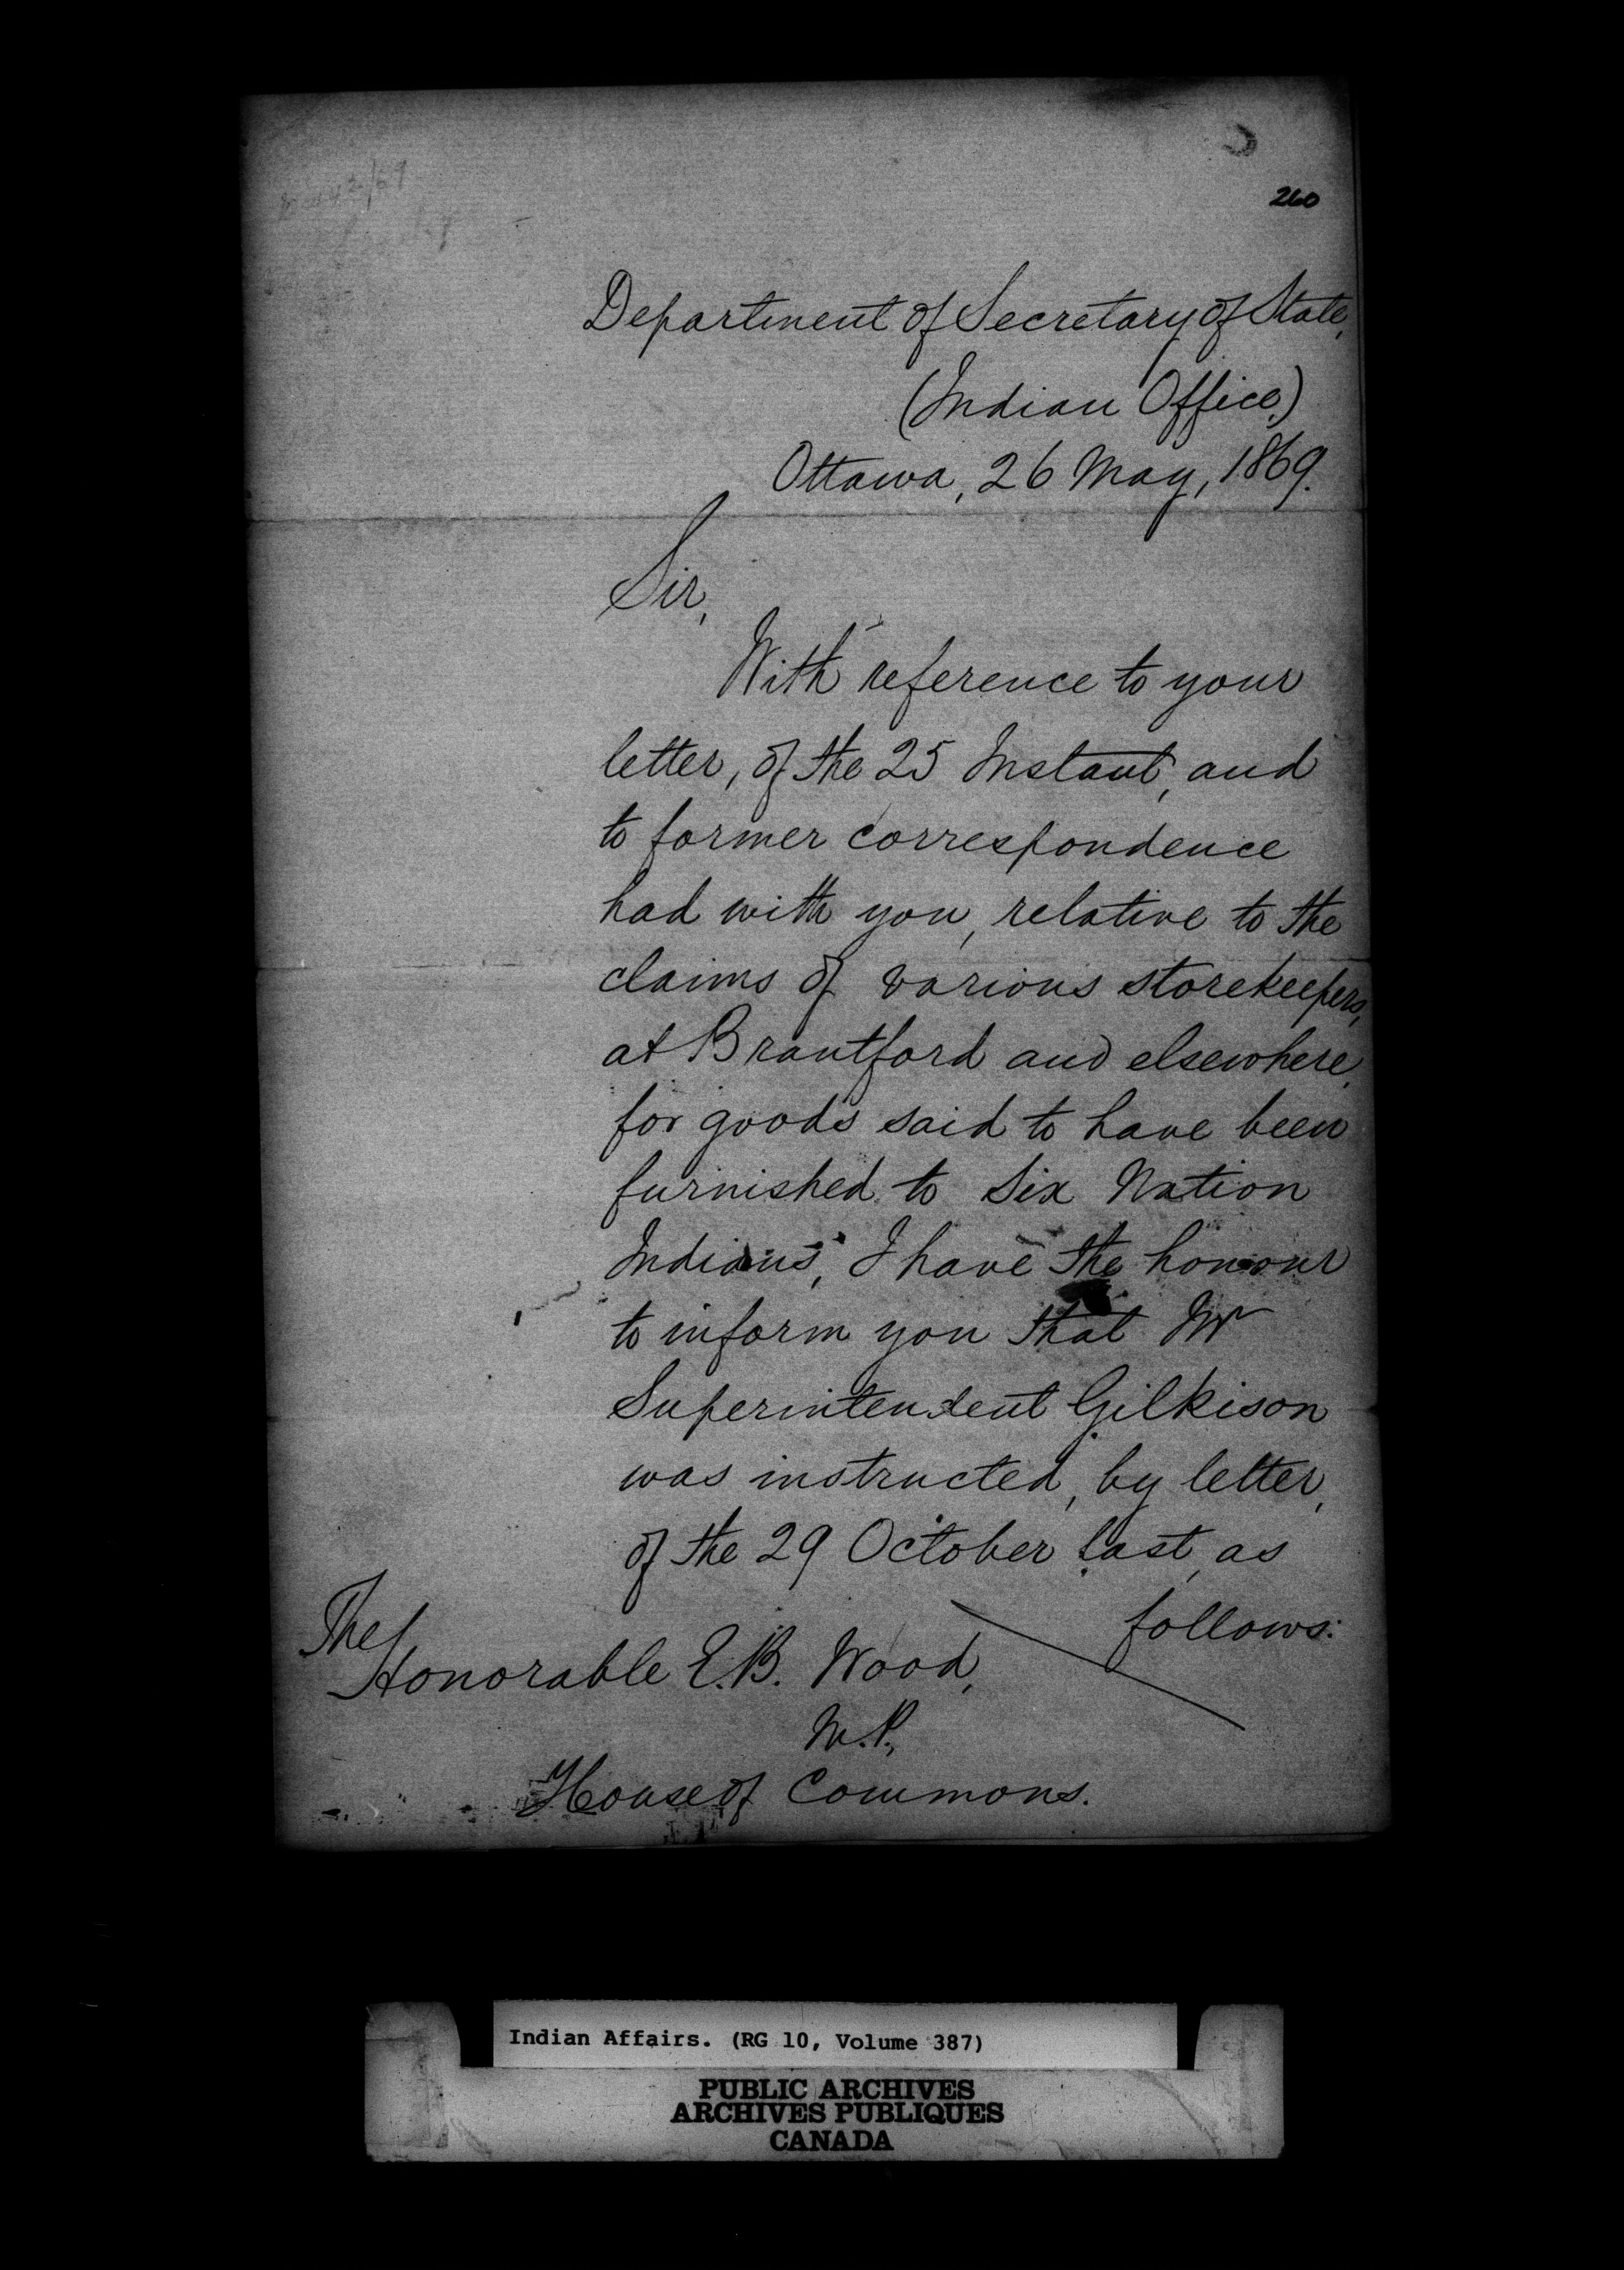 260
Department of Secretary of State,
(Indian Office,)
Ottawa, 26 May, 1869.
Sir,
With reference to your
letter, of the 25 Instant, and
to former correspondence
had with you, relative to the
claims of various storekeepers,
at Brantford and elsewhere,
for goods said to have been
furnished to Six Nation
Indians, I have the honour
to inform you that Mr
Superintendent Gilkison
was instructed, by letter,
of the 29 October last, as
follows:
The
Honorable E.B. Wood,
M.P.,
House of Commons.
Indian Affairs. (RG 10, Volume 387)
PUBLIC ARCHIVES
ARCHIVES PUBLIQUES
CANADA